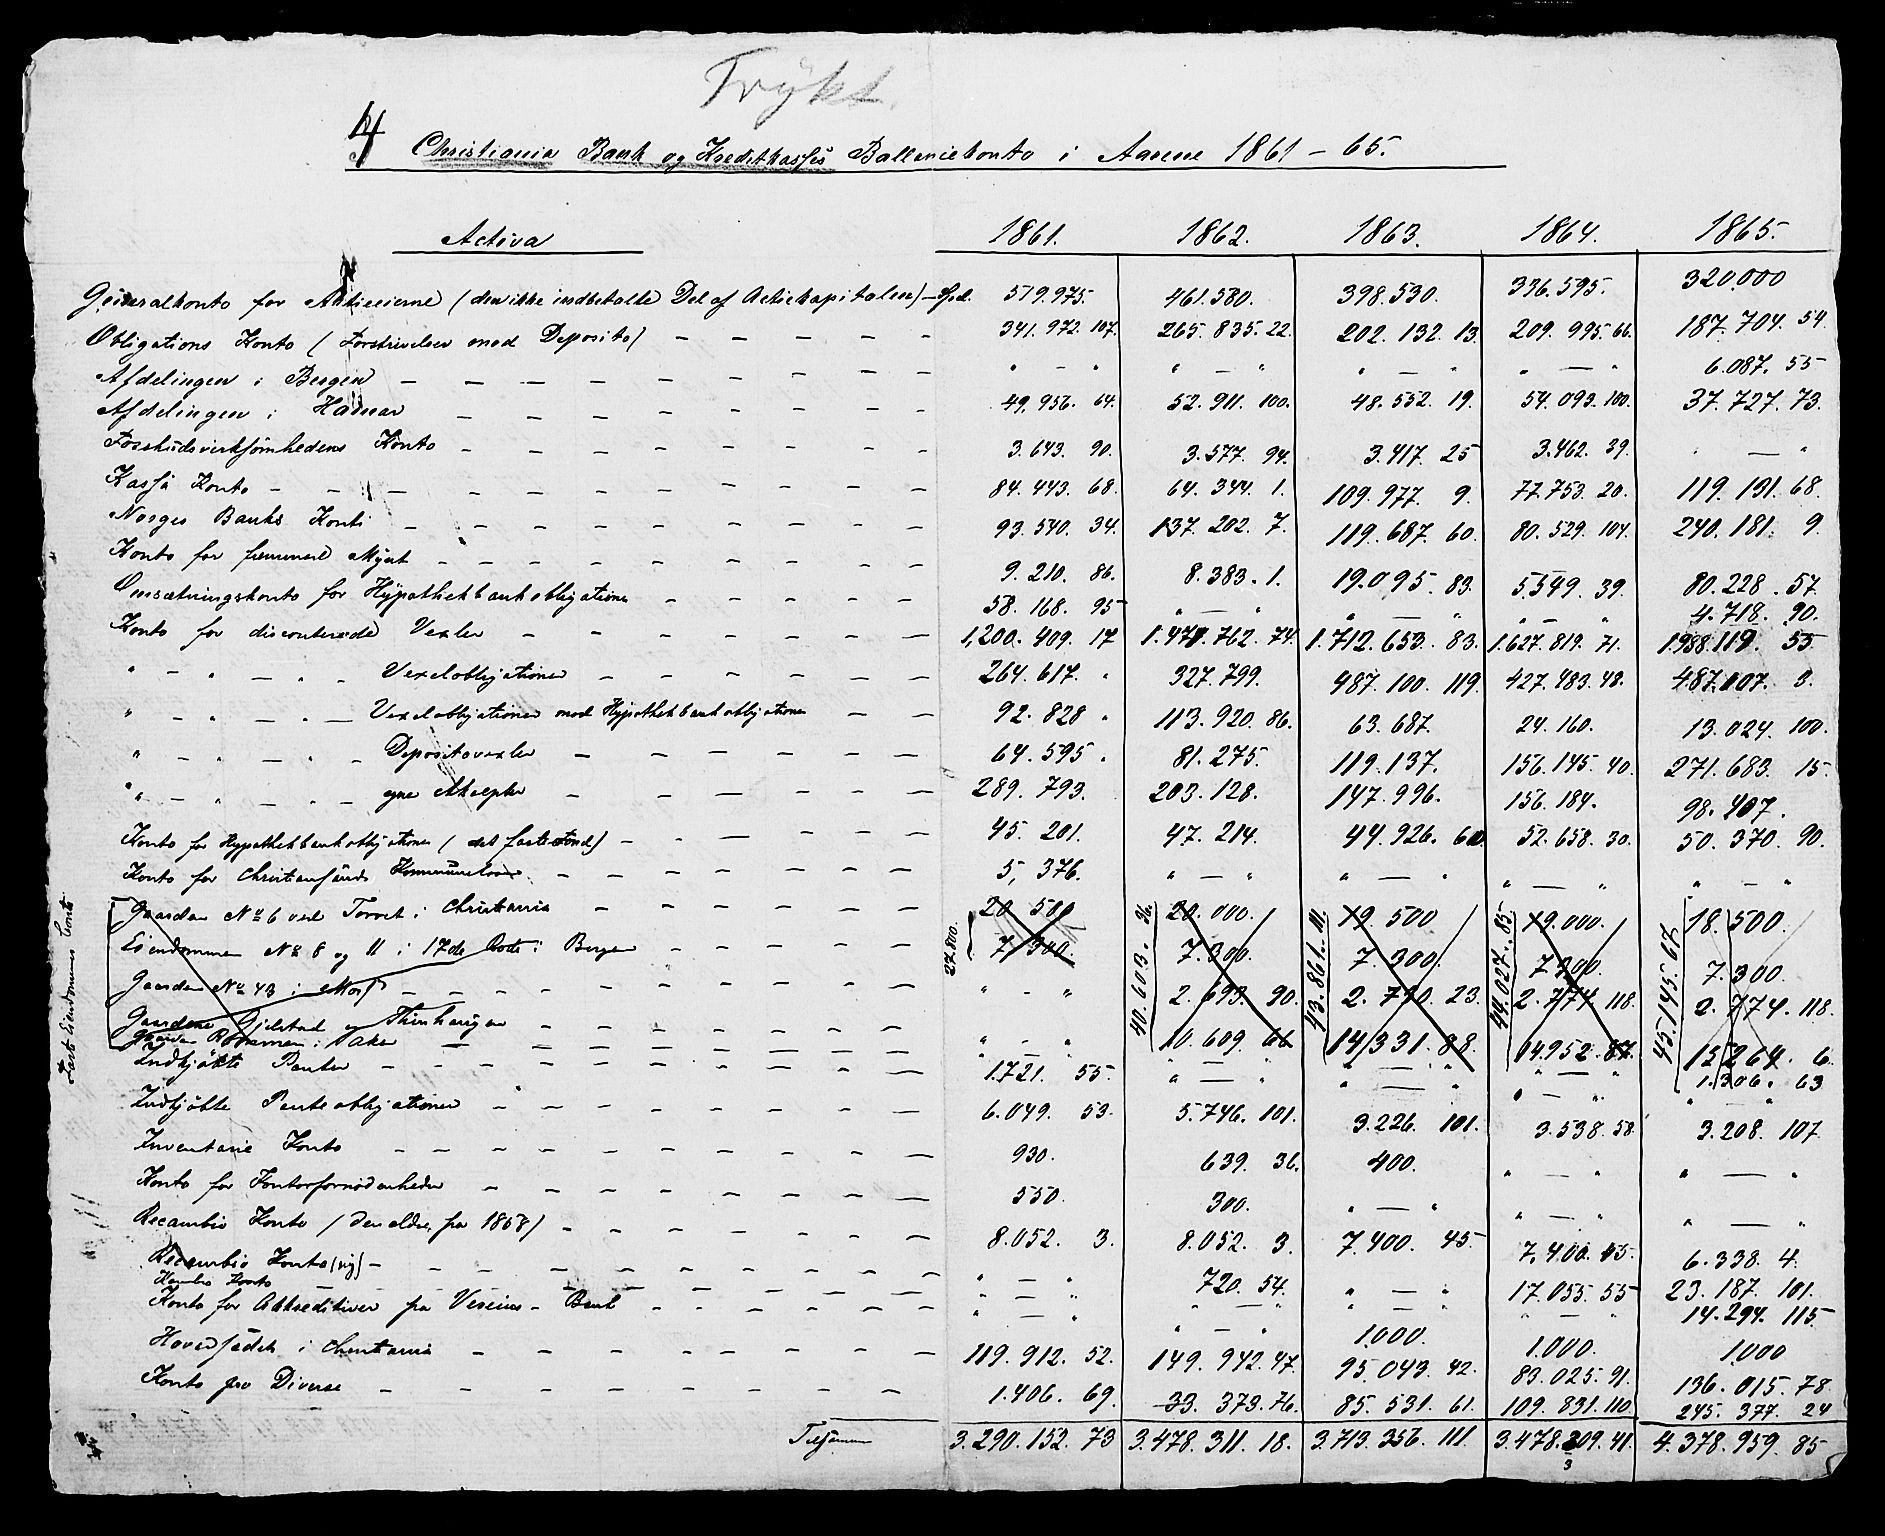 Trykt.
4
Christiania Bank og Kreditkasses Ballancekonto i Aarene 1861 – 65.
Activa 1861. 1862. 1863. 1864. 1865.
Generalkonto for Aktieeierne (den ikke indbetalte Del af Actiekapitalen) – Spd. 519.975. 461.580. 398.530. 336.595. 320.000
Obligations Konto (Forskrivelser mod Deposito) – – – – – 341.972. 107. 265.835. 22. 202.132. 13. 209.995. 66. 187.704. 54.
Afdelingen i Bergen – – – – – – – – " – " " – " " – " " – " 6.087. 55
Afdelingen i Hamar – – – – – – – 49.956. 64. 52.911. 100. 48.552. 19. 54.093. 100. 37.727. 73.
Forskudsvirksomhedens Konto – – – – – – – 3.643. 90. 3.577. 94. 3.417. 25 3.462. 39. " – "
Kassa Konto – – – – – – – – – 84.443. 68. 64.344. 1. 109.977. 9. 77.753. 20. 119.131. 68.
Norges Banks Konti – – – – – – – – 93.540. 34. 137.202. 7. 119.687. 60. 80.529. 104. 240.181. 9.
Konto for fremmed Mynt – – – – – – – 9.210. 86. 8.383. 1. 19.095. 83. 5.549. 39. 80.228. 57.
Omsætningskonto for Hypothekbankobligationer – – – – 58.168. 95 " – " " – " " – " 4.718. 90.
Konto for disconterede Vexler – – – – – – 1,200.409. 17 1.471.762. 74. 1.712.653. 83. 1.627.819. 71. 1.938.119. 55
" – " – " " Vexelobligationer – – – – – 264.617. " 327.799. 487.100. 119. 427.483. 48. 487.107. 3.
" – " – " – Vexelobligationer mod Hypothekbankobligationer – – 92.828 " 113.920. 86. 63.687. 24.160. 13.024. 100.
" – " – " – Depositovexler – – – – – 64.595 " 81.275. 119.137. 156.145. 40. 271.683. 15.
" – " – " – egne Akcepter – – – – – – 289.793. 203.128. 147.996. 156.184. 98.407.
Konto for Hypothekbankobligationer (det faste Fond) – – – – – 45.201. 47.214. 44.926. 60. 52.658. 30. 50.370. 90.
Konto for Christiansands Kommunelaan – – – – – – 5,376. " – " " – " " – " " – "
Faste Eiendommes Conto
Gaarden No 6 ved Torvet i Christiania – – – – – – 20.500 20.000. 19.500 19.000. 18.500.
Eiendommen No 8 og 11 i 17de Rode i Bergen – – – – 7.300. 7.300. 7.300. 7.300. 7.300
27.800. 40.603. 36. 43.861. 111. 44.027. 85. 45.145. 67.
Gaarden No 43 i Moss – – – – – – – – " – " 2.693. 90. 2.730. 23. 2.774. 118. 2.774. 118.
Gaardene Gjelstad og – – – – – – " – " 10.609. 66 14.331. 88. 14.952. 87. 15.264. 6.
Gaarden i Aker – – – – – – – " – " " – " " – " " – " 1.306. 63
Indkjøbte Panter – – – – – – – – 1.721. 55. " – " " – " " – " " – "
Indkjøbte Panteobligationer – – – – – – – 6.049. 53. 5.746. 101. 3.226. 101. 3.538. 58. 3.208. 107.
Inventarie Konto – – – – – – – – 930. 639. 36. 400. " – " " – "
Konto for Kontorfornødenheder – – – – – – – 550. 300. " – " " – " " – "
Recambio Konto (den ældre, fra 1858) – – – – – – 8.052. 3. 8.052. 3. 7.400. 45. 7.400. 45. 6.338. 4.
Recambio Konto (ny) – – – – – – – – " – " 720. 54. " – " 17.055. 55 23.187. 101.
Konto – – – – – – – " – " " – " " – " " – " 14.294. 115
Konto for Akkreditiver fra Vereins-Bank – – – – – " – " " – " 1.000. 1.000. 1.000
Hovedsædet i Christiania – – – – – – – 119.912. 52. 149.942. 47. 95.043. 42. 83.025. 91. 136.015. 78
Konto pro Diverse – – – – – – – – 1.406. 69. 33.373. 76. 85.531. 61. 109.831. 110. 245.377. 24
Tilsammen 3.290.152. 73 3.478.311. 18. 3.713.356. 111. 3.478.309. 41. 4.378.959. 85
3